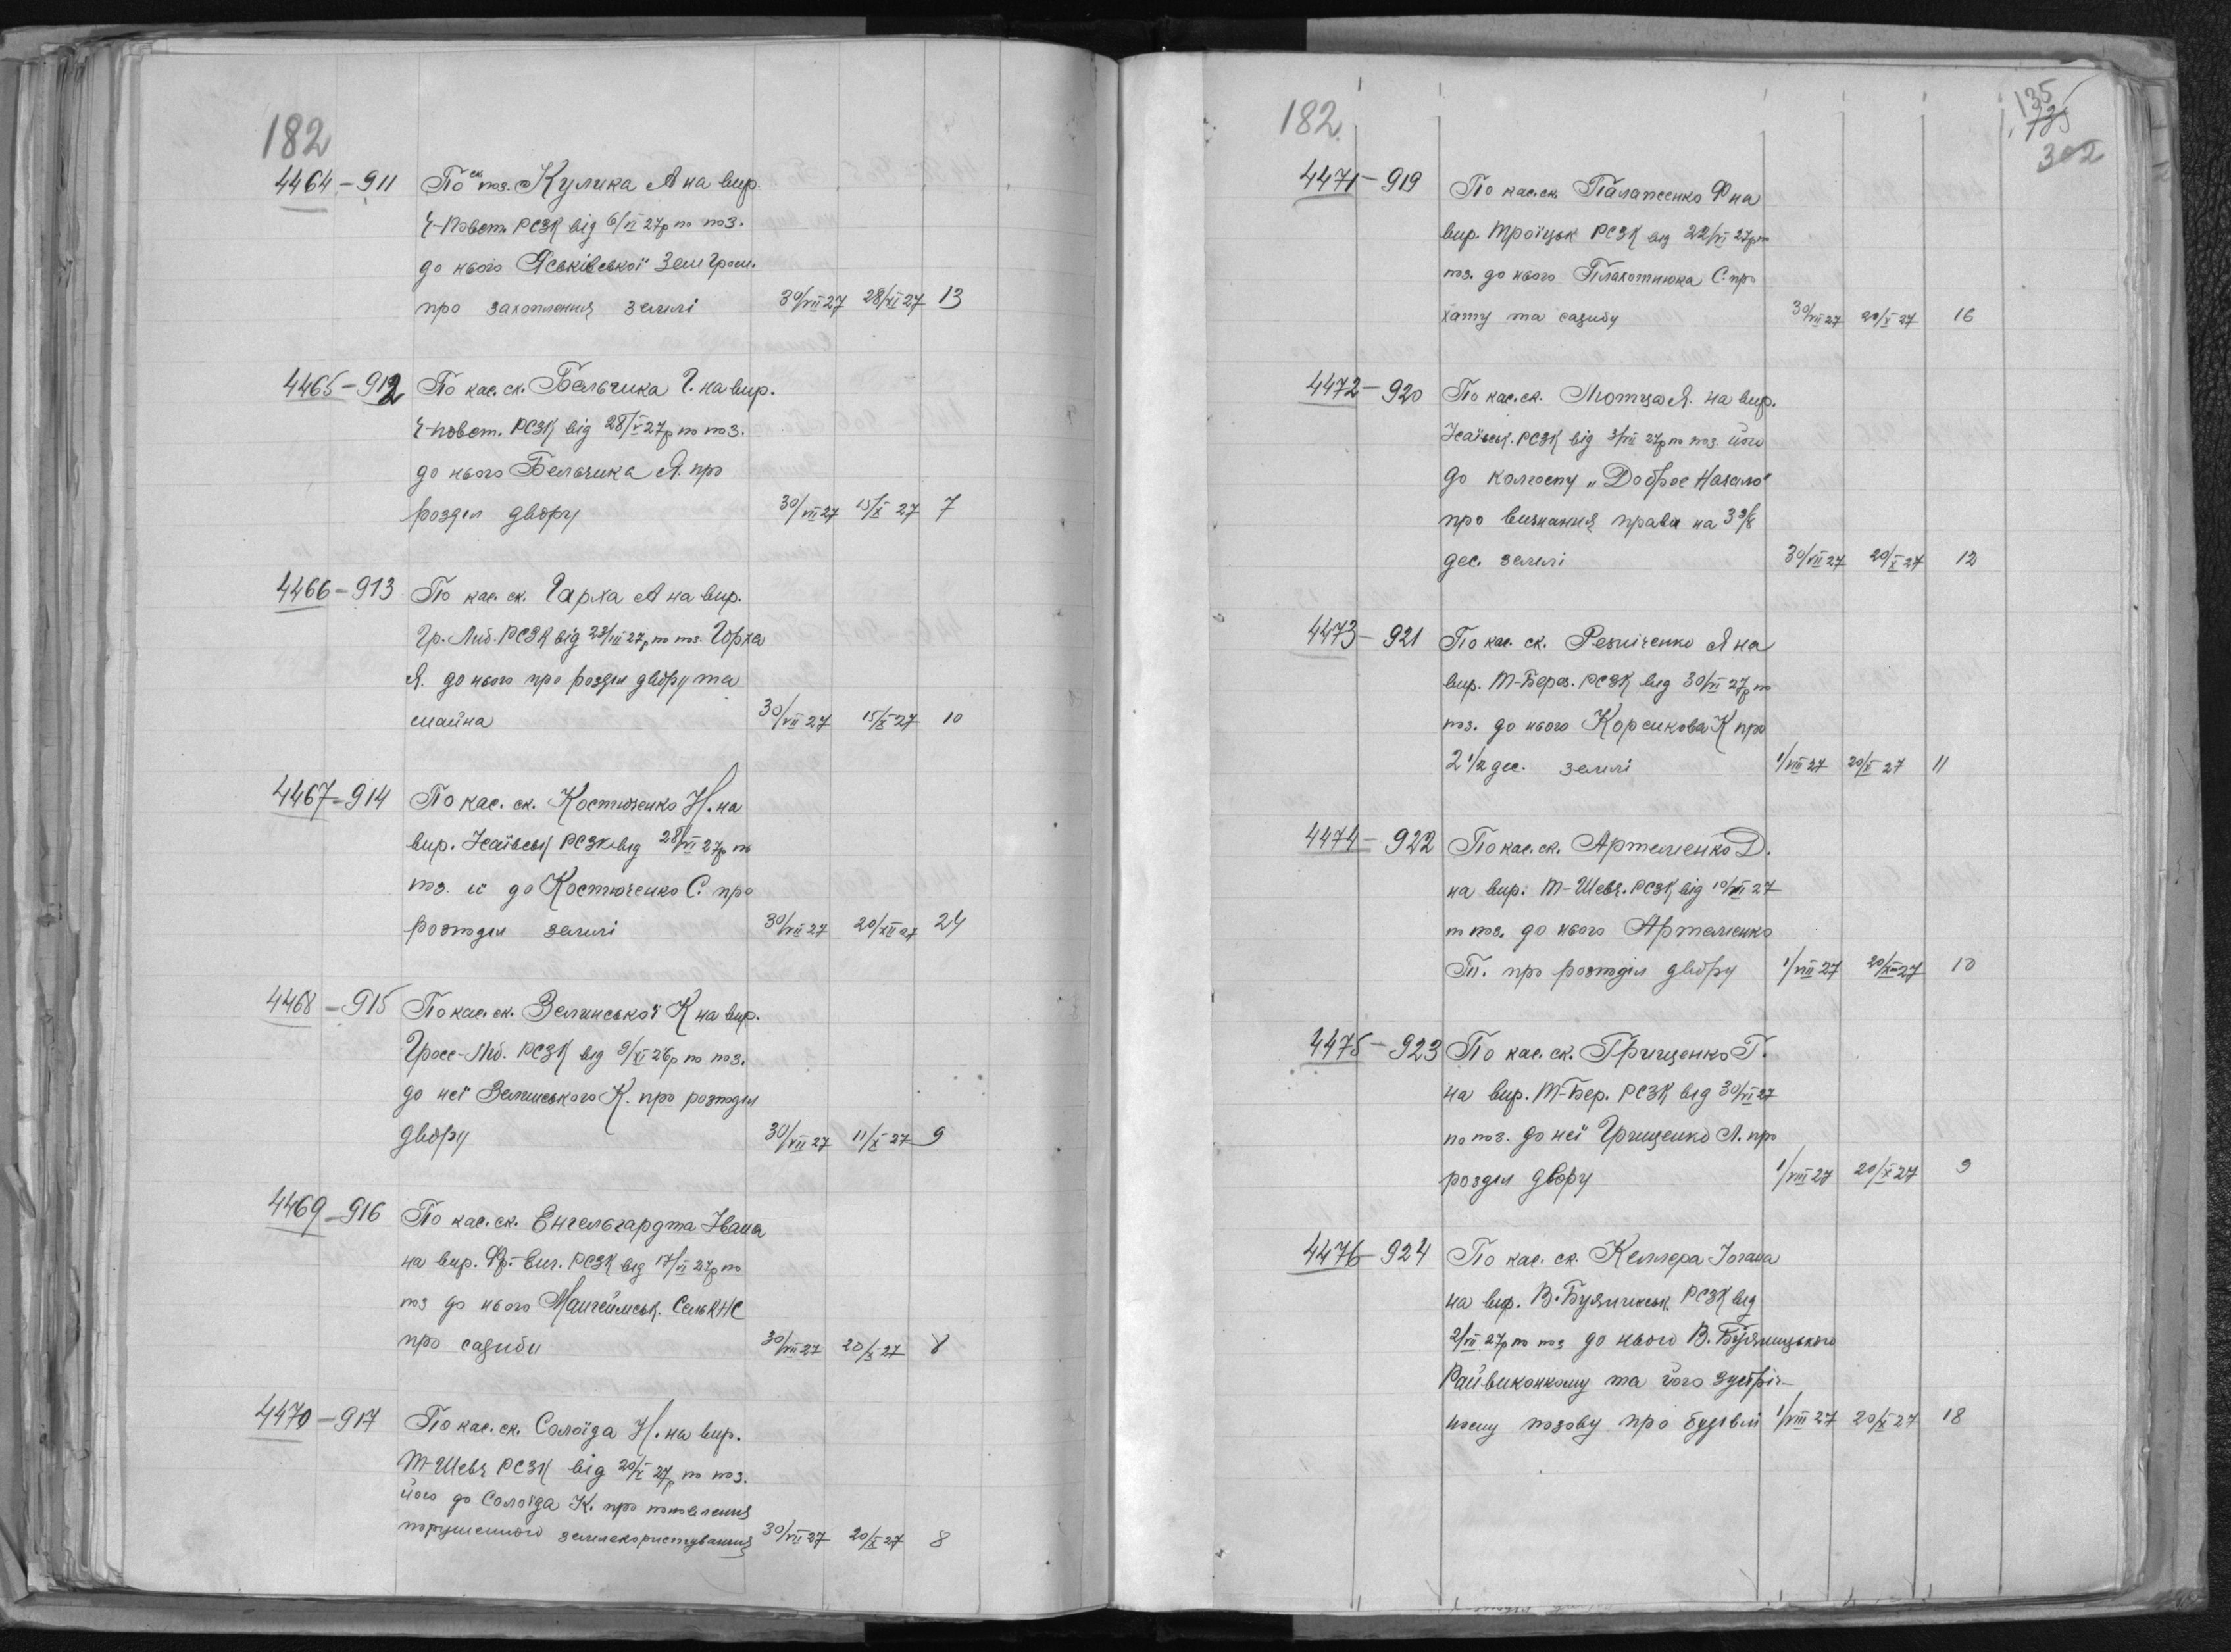 182
4464 – 911 По ск. поз. Кулика А на вир.
Ч-Повст. РСЗК від 6/VI 27р по поз.
до нього Яськівської Зем Гром.
про захоплення землі 30/VII 27 28/XI 27 13
4465 – 912 По кас. ск. Бельчика Г. на вир.
Ч-повст. РСЗК від 28/V 27р по поз.
до нього Бельчика Я. про
розділ двору 30/VII 27 15/X 27 7
4466 – 913 По кас. ск. Гарха А на вир.
Гр. Либ. РСЗК від 23/III 27р по поз. Горха
Я. до нього про розділ двору та
майна 30/VII 27 15/X 27 10
4467 – 914 По кас. ск. Костюченко Н. на
вир. Ісаївськ РСЗК від 28/VI 27р по
поз. її до Костюченко С. про
розподіл землі 30/VII 27 20/XII 27 24
4468 – 915 По кас. ск. Зелинської К на вир.
Гросс-Либ. РСЗК від 9/XI 26р по поз.
до неї Зелинського К. про розподіл
двору 30/VII 27 11/X 27 9
4469 – 916 По кас. ск. Енгельгардта Івана
на вир. Фр.-Енг. РСЗК від 17/VI 27р по
поз до нього Мангеймськ. СельКНС
про садиби 30/VII 27 20/X 27 8
4470 – 917 По кас. ск. Солоїда Н. на вир.
Т-Шевч РСЗК від 20/V 27р по поз.
його до Солоїда К. про поновлення
порушенного землекористування 30/VII 27 20/X 27 8
182
135
135
302
4471 – 919 По кас. ск. Палаженко Ф на
вир. Троїцьк РСЗК від 22/VI 27р по
поз. до нього Плахотнюка С. про
хату та садибу 30/VII 27 20/X 27 16
4472 – 920 По кас. ск. Мотца Я. на вир.
Ісаївськ. РСЗК від 3/VII 27р по поз. його
до колгоспу „Доброе Начало"
про визнання права на 3 3/8
дес. землі 30/VII 27 20/X 27 12
4473 – 921 По кас. ск. Резніченко Я на
вир. Т-Берез. РСЗК від 30/VI 27р по
поз. до нього Корсикова К про
2 1/2 дес. землі 1/VIII 27 20/X 27 11
4474 – 922 По кас. ск. Артеменко Д.
на вир. Т-Шевч. РСЗК від 10/VII 27
по поз. до нього Артеменко
Т. про розподіл двору 1/VIII 27 20/X 27 10
4475 – 923 По кас. ск. Грищенко Г.
на вир. Т-Бер. РСЗК від 30/VI 27
по поз. до неї Грищенко Л. про
розділ двору 1/VIII 27 20/X 27 9
4476 – 924 По кас. ск. Келлера Іогана
на вир. В-Буялицьк. РСЗК від
2/VII 27р по поз до нього В. Буялицького
Райвиконкому та його зустріч-
ному позову про будівлі 1/VIII 27 20/X 27 18